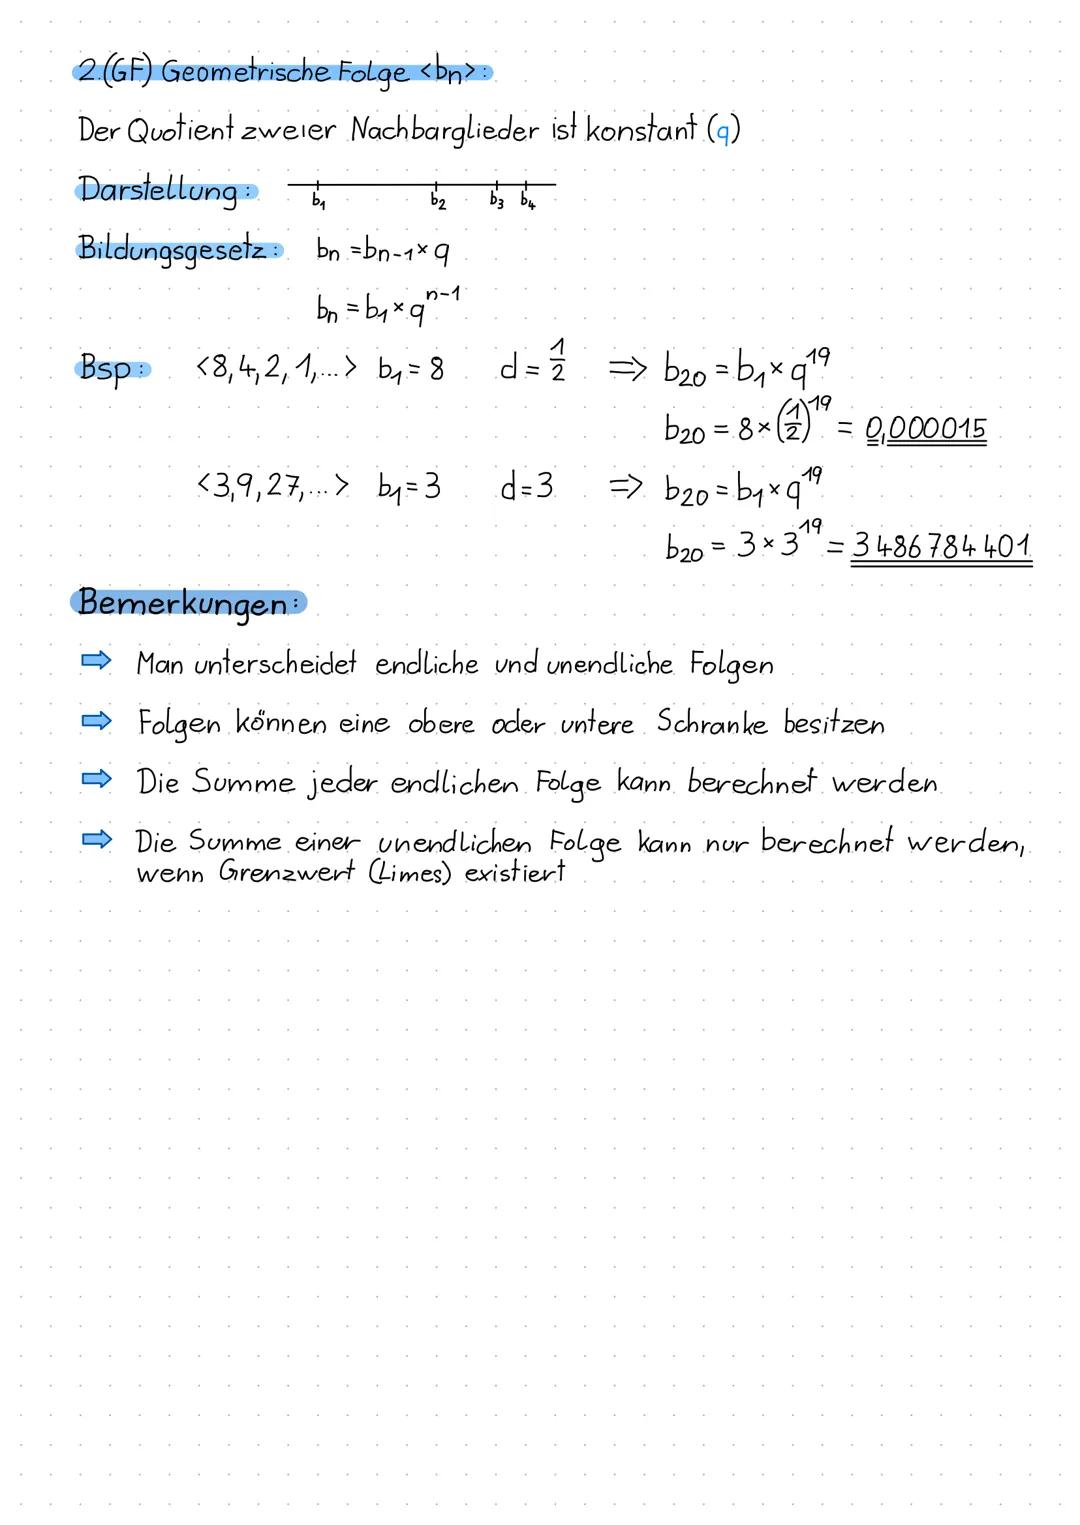 2.(GF) Geometrische Folge <bn>:
Der Quotient zweier Nachbarglieder ist konstant (q)
Darstellung: b₁ b₂ b₃ b₄
Bildungsgesetz: bn = bn-1 × q
bn = b₁ × q^(n-1)
Bsp: <8,4,2,1,...> b₁ = 8 d = 1/2 ⇒ b₂₀ = b₁ × q^19
b₂₀ = 8 × (1/2)^19 = 0,000015
<3,9,27,...> b₁ = 3 d = 3 ⇒ b₂₀ = b₁ × q^19
b₂₀ = 3 × 3^19 = 3 486 784 401
Bemerkungen:
⇨ Man unterscheidet endliche und unendliche Folgen
⇨ Folgen können eine obere oder untere Schranke besitzen
⇨ Die Summe jeder endlichen Folge kann berechnet werden
⇨ Die Summe einer unendlichen Folge kann nur berechnet werden,
wenn Grenzwert (Limes) existiert